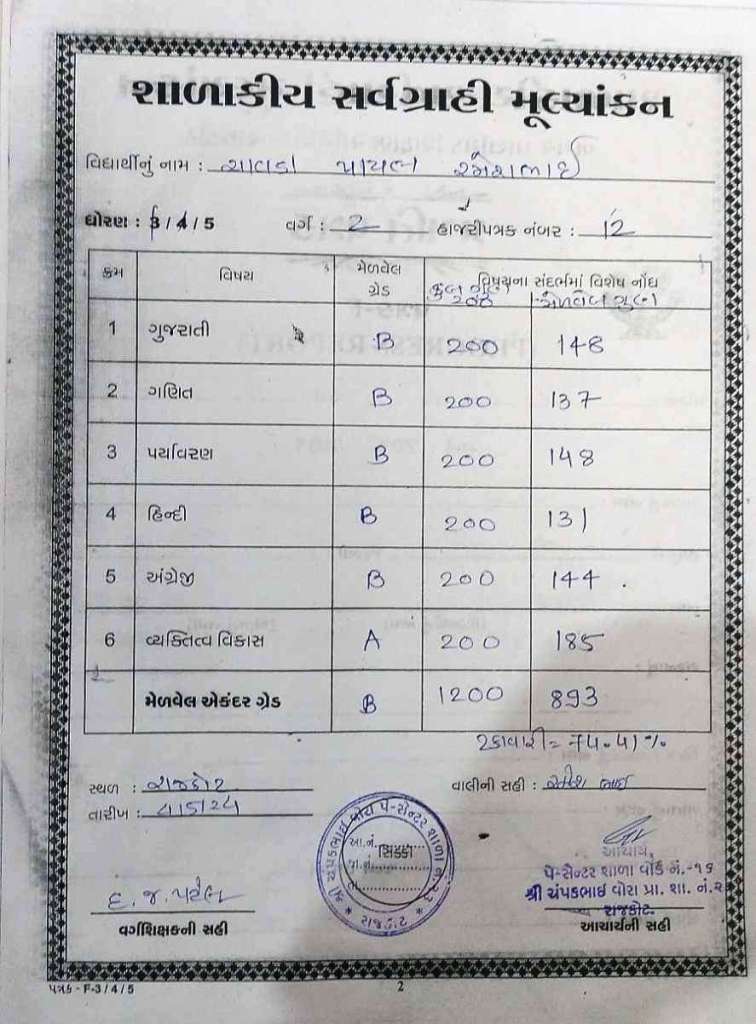 શાળાકીય સર્વગ્રાહી મૂલ્યાંકન
વિદ્યાર્થીનું નામ : ચાવડા પાયલ રમેશભાઈ
ધોરણ : 3 / 4 / 5 વર્ગ : 2 હાજરીપત્રક નંબર : 12
ક્રમ વિષય મેળવેલ ગ્રેડ વિષયના સંદર્ભમાં વિશેષ નોંધ
કુલ ગુણ 200 મેળવેલ ગુણ
1 ગુજરાતી B 200 148
2 ગણિત B 200 137
3 પર્યાવરણ B 200 148
4 હિન્દી B 200 131
5 અંગ્રેજી B 200 144
6 વ્યક્તિત્વ વિકાસ A 200 185
મેળવેલ એકંદર ગ્રેડ B 1200 893
ટકાવારી = 74.41%
સ્થળ : રાજકોટ વાલીની સહી :
તારીખ : 4/5/24
શ્રી ચંપકભાઇ વોરા પે-સેન્ટર શાળા નં.
સિક્કો
રાજકોટ
આચાર્ય,
પે-સેન્ટર શાળા વોર્ડ નં.-૧૬
શ્રી ચંપકભાઇ વોરા પ્રા. શા. નં.
રાજકોટ.
દ. જ. પટેલ
વર્ગશિક્ષકની સહી આચાર્યની સહી
પત્રક - F-3 / 4 / 5 2